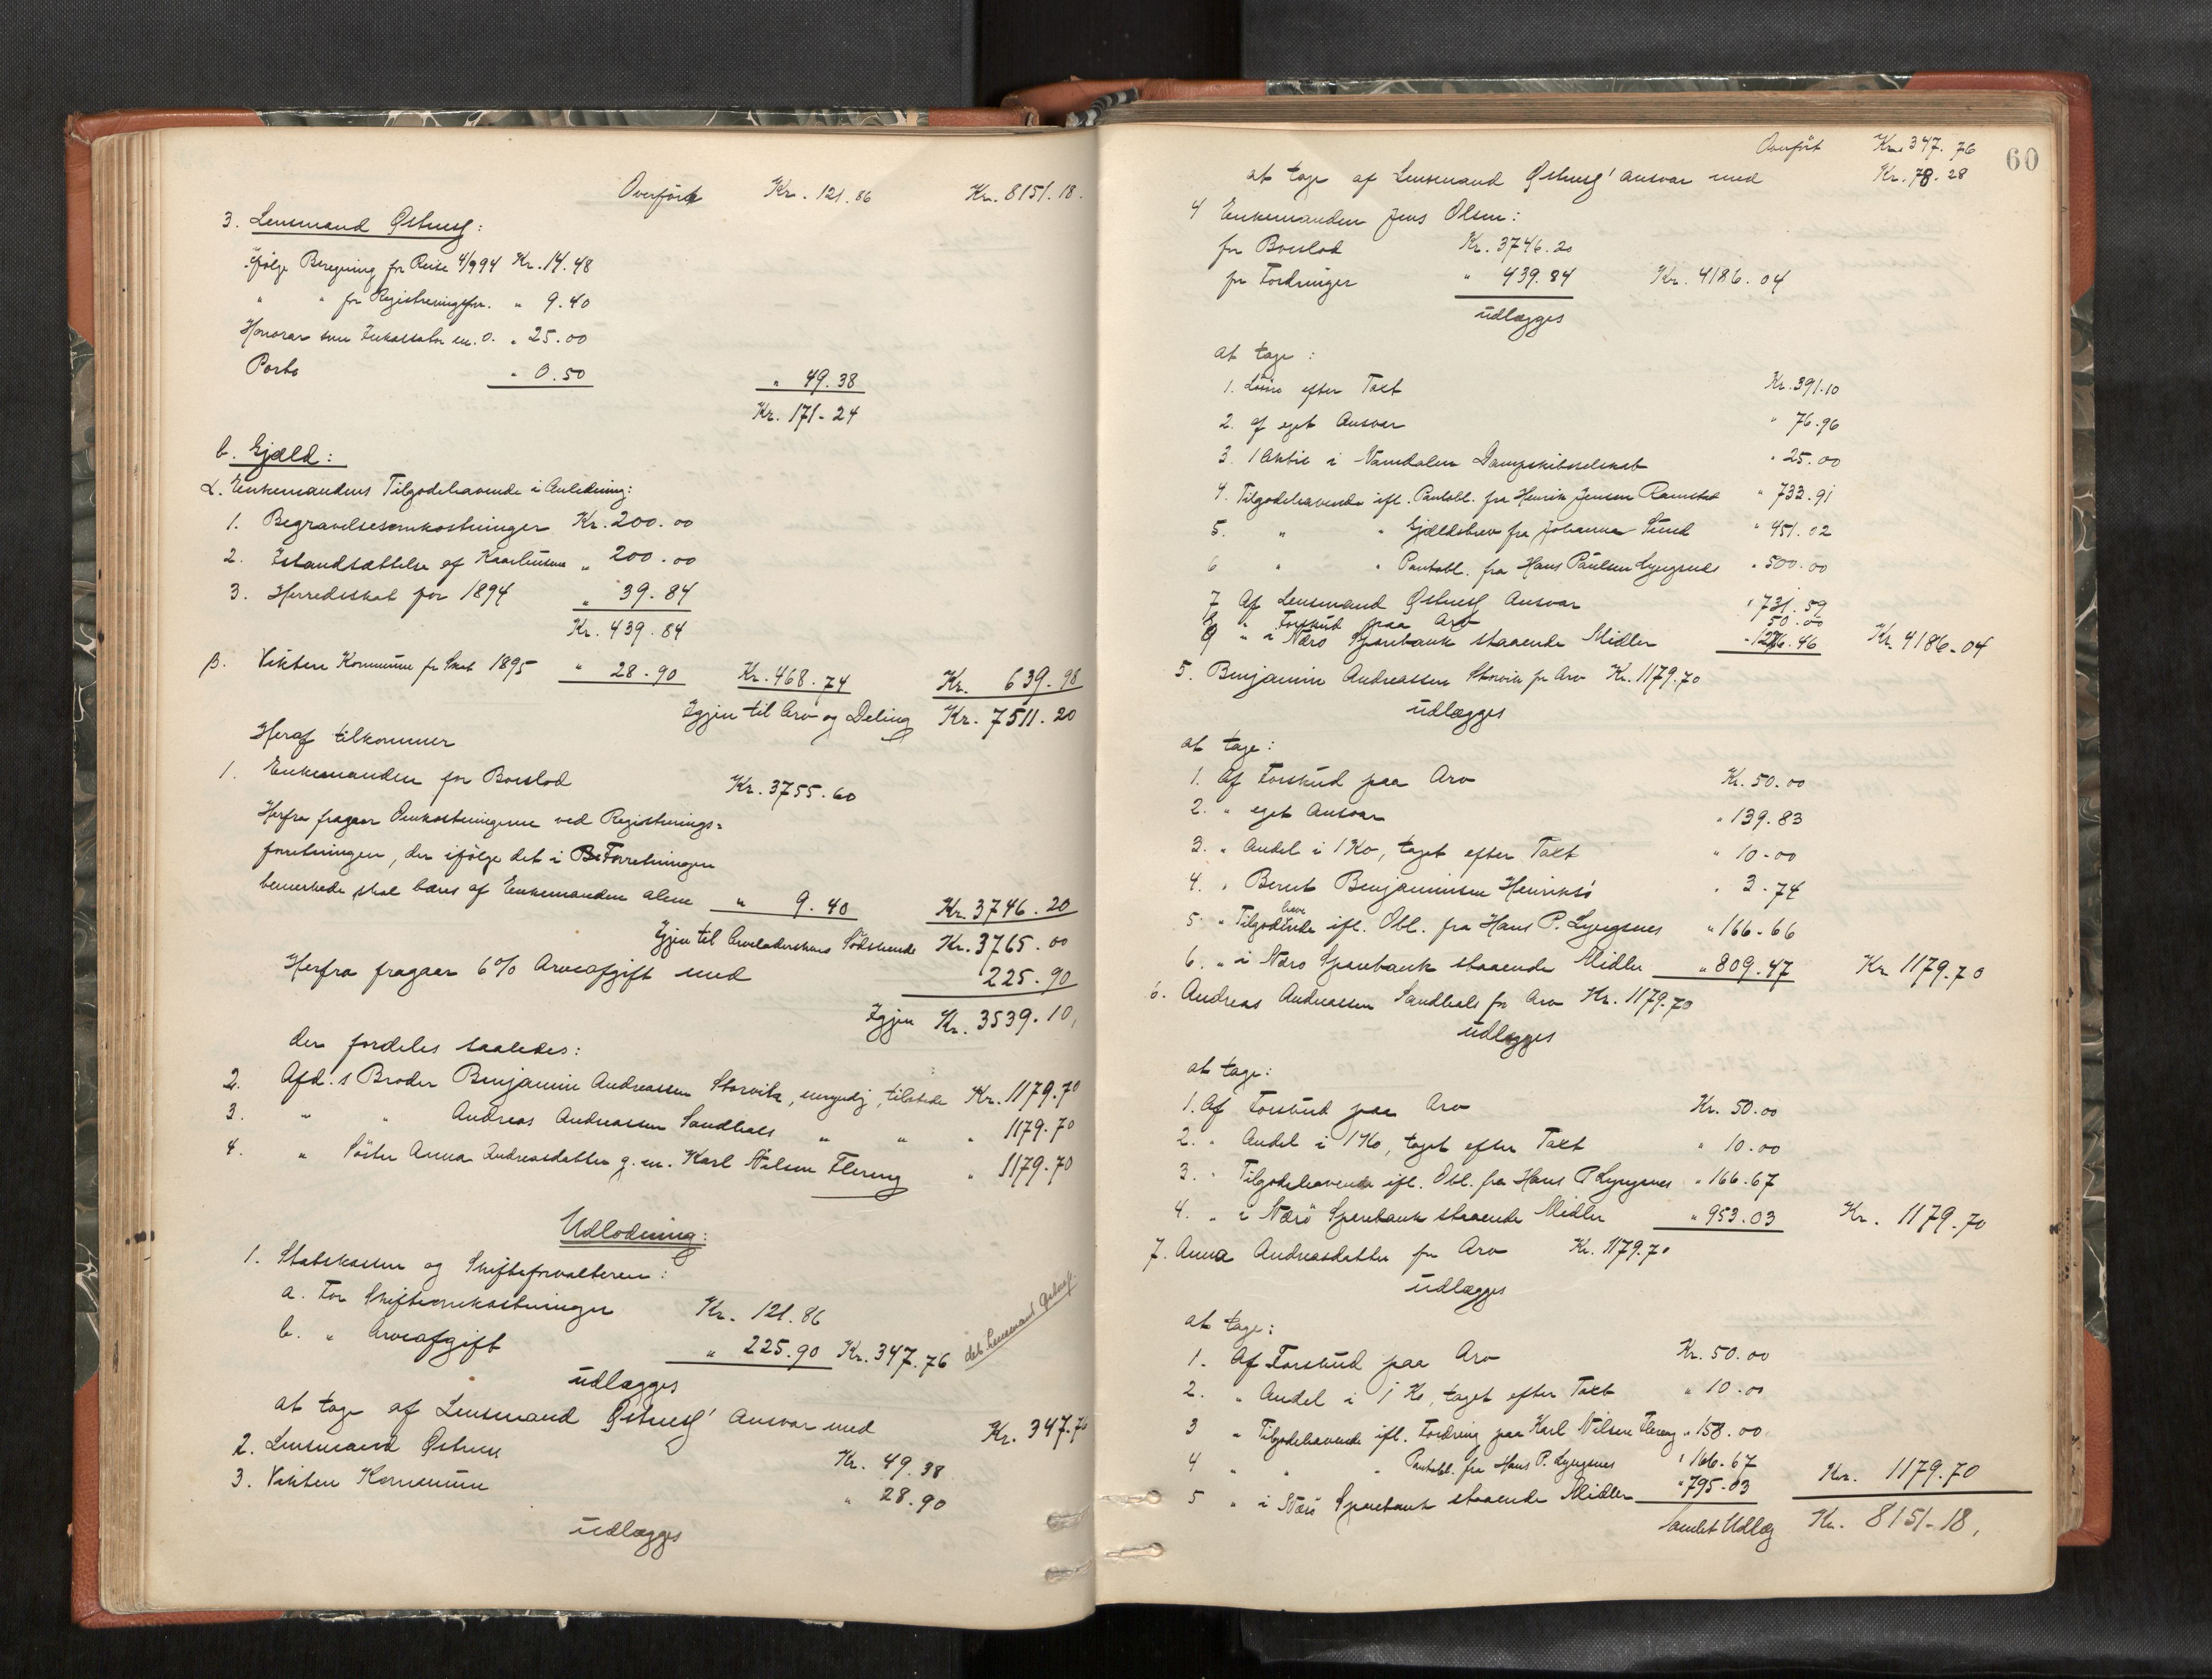 Overført Kr. 121.86 Kr. 8151.18.
3. Lensmand Østnes:
Ifølge Beregning for Reise 4/9 94 Kr. 14.48
" " for Registreringsfor. " 9.40
Honorar som Inkassator m. v. " 25.00
Porto " 0.50 " 49.38
Kr. 171.24
b. Gjæld:
α. Enkemandens Tilgodehavende i Anledning:
1. Begravelsesomkostninger Kr. 200.00
2. Istandsættelse af Kaarhuset " 200.00
3. Herredsskat for 1894 " 39.84
Kr. 439.84
β. Vikten Kommune for Skat 1895 " 28.90 Kr. 468.74 Kr. 639.98
Igjen til Arv og Deling Kr. 7511.20
Heraf tilkommer
1. Enkemanden for Boeslod Kr. 3755.60
Herfra fragaar Omkostningerne ved Registrerings=
forretningen, der ifølge det i Forretningen
bemerkede skal bæres af Enkemanden alene " 9.40 Kr. 3746.20
Igjen til Arveladerskens Sødskende Kr. 3765.00
Herfra fragaar 6% Arveafgift med 225.90
Igjen Kr. 3539.10,
der fordeles saaledes:
2. Afd.s Broder Benjamin Andreassen Storvik, myndig, tilstede Kr. 1179.70
3. " " Andreas Andreassen Sandhals " " " 1179.70
4. " Söster Anna Andreasdatter g. m. Karl Nilsen Flereng " 1179.70
Udlodning:
1. Statskassen og Skifteforvalteren:
a. For Skifteomkostninger Kr. 121.86
b. " Arveafgift " 225.90 Kr. 347.76
deb. Lensmand Østnes.
udlægges
at tage af Lensmand Østnes' Ansvar med Kr. 347.76
2. Lensmand Østnes Kr. 49.38
3. Vikten Kommune " 28.90
udlægges
60
Overført Kr. 347.76
at tage af Lensmand Østnes' Ansvar med Kr. 78.28
4 Enkemanden Jens Olsen:
for Boeslod Kr. 3746.20
for Fordringer " 439.84 Kr. 4186.04
udlægges
at tage:
1. Løsøre efter Taxt Kr. 391.10
2. af eget Ansvar " 76.96
3. 1 Aktie i Namdalen Dampskibsselskab " 25.00
4. Tilgodehavende ifl. Pantobl. fra Henrik Jensen Ramstad " 733.91
5. " " Gjældsbrev fra Johanna Sund " 451.02
6 " " Pantobl. fra Hans Paulsen Lyngsnes " 500.00
7 Af Lensmand Østnes Ansvar " 731.59
8 " Forskud paa Arv 50.00
9 " i Nærø Sparebank staaende Midler " 1226.46 Kr. 4186.04
5. Benjamin Andreassen Storvik for Arv Kr. 1179.70
udlægges
at tage:
1. Af Forskud paa Arv Kr. 50.00
2. " eget Ansvar " 139.83
3. " Andel i 1 Ko, taget efter Taxt " 10.00
4. " Bernt Benjaminsen Henriksø " 3.74
5 " Tilgodehavende ifl. Obl. fra Hans P. Lyngsnes " 166.66
6. " i Nærø Sparebank staaende Midler " 809.47 Kr 1179.70
6. Andreas Andreassen Sandhals for Arv Kr. 1179.70
udlægges
at tage:
1. Af Forskud paa Arv Kr. 50.00
2. " Andel i 1 Ko, taget efter Taxt " 10.00
3. " Tilgodehavende ifl. Obl. fra Hans P Lyngsnes " 166.67
4. " i Nærø Sparebank staaende Midler " 953.03 Kr. 1179.70
7. Anna Andreasdatter for Arv Kr. 1179.70
udlægges
at tage:
1. Af Forskud paa Arv Kr. 50.00
2. " Andel i 1 Ko, taget efter Taxt " 10.00
3 " Tilgodehavende ifl. Fordring paa Karl Nilsen Flereng " 158.00
4 " " " Pantobl. fra Hans P. Lyngsnes " 166.67
5 " i Nærø Sparebank staaende Midler " 795.03 Kr. 1179.70
Samlet Udlæg Kr. 8151.18,